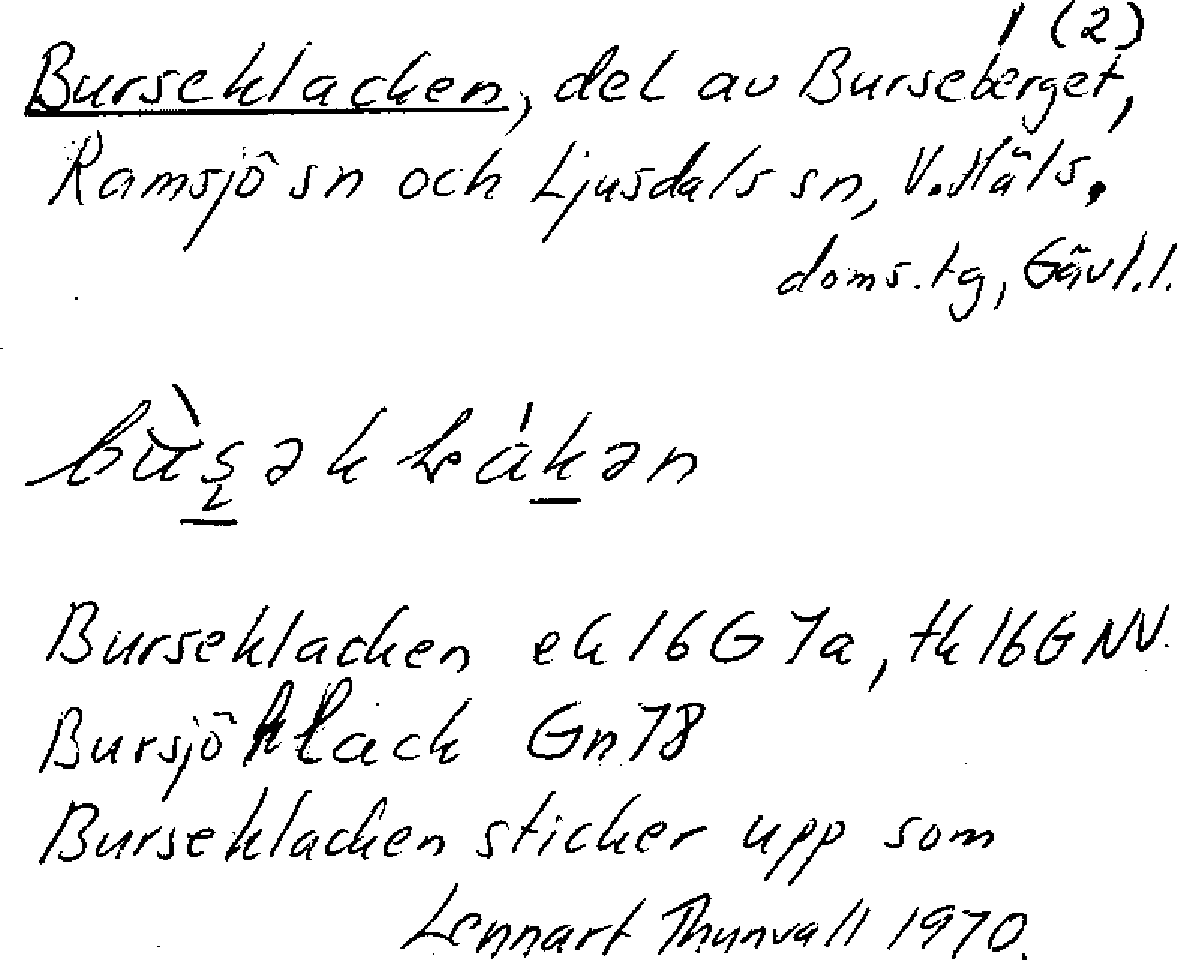 1 (2)
Burseklacken, del av Burseberget,
Ramsjö sn och Ljusdals sn, V. Häls.
doms.tg, Gävl.l.
Burseklacken ek 16G 7a, tk 16G NV.
Bursjöklack Gn 78
Burseklacken sticker upp som
Lennart Thunvall 1970.